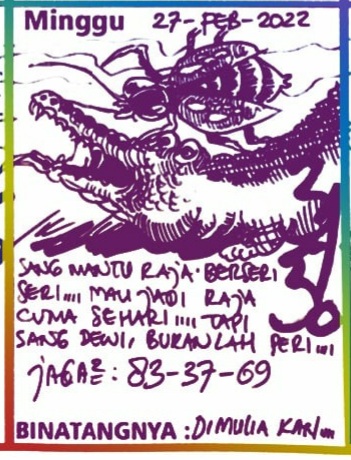 Minggu 27-PEB-2022
SANG MANTU RAJA. BERSERI
SERI.... MAU JADI RAJA
CUMA SEHARI.... TAPI
SANG DEWI, BUKANLAH PERI...
JAGA2: 83-37-69
BINATANGNYA : DIMULIA KAN...